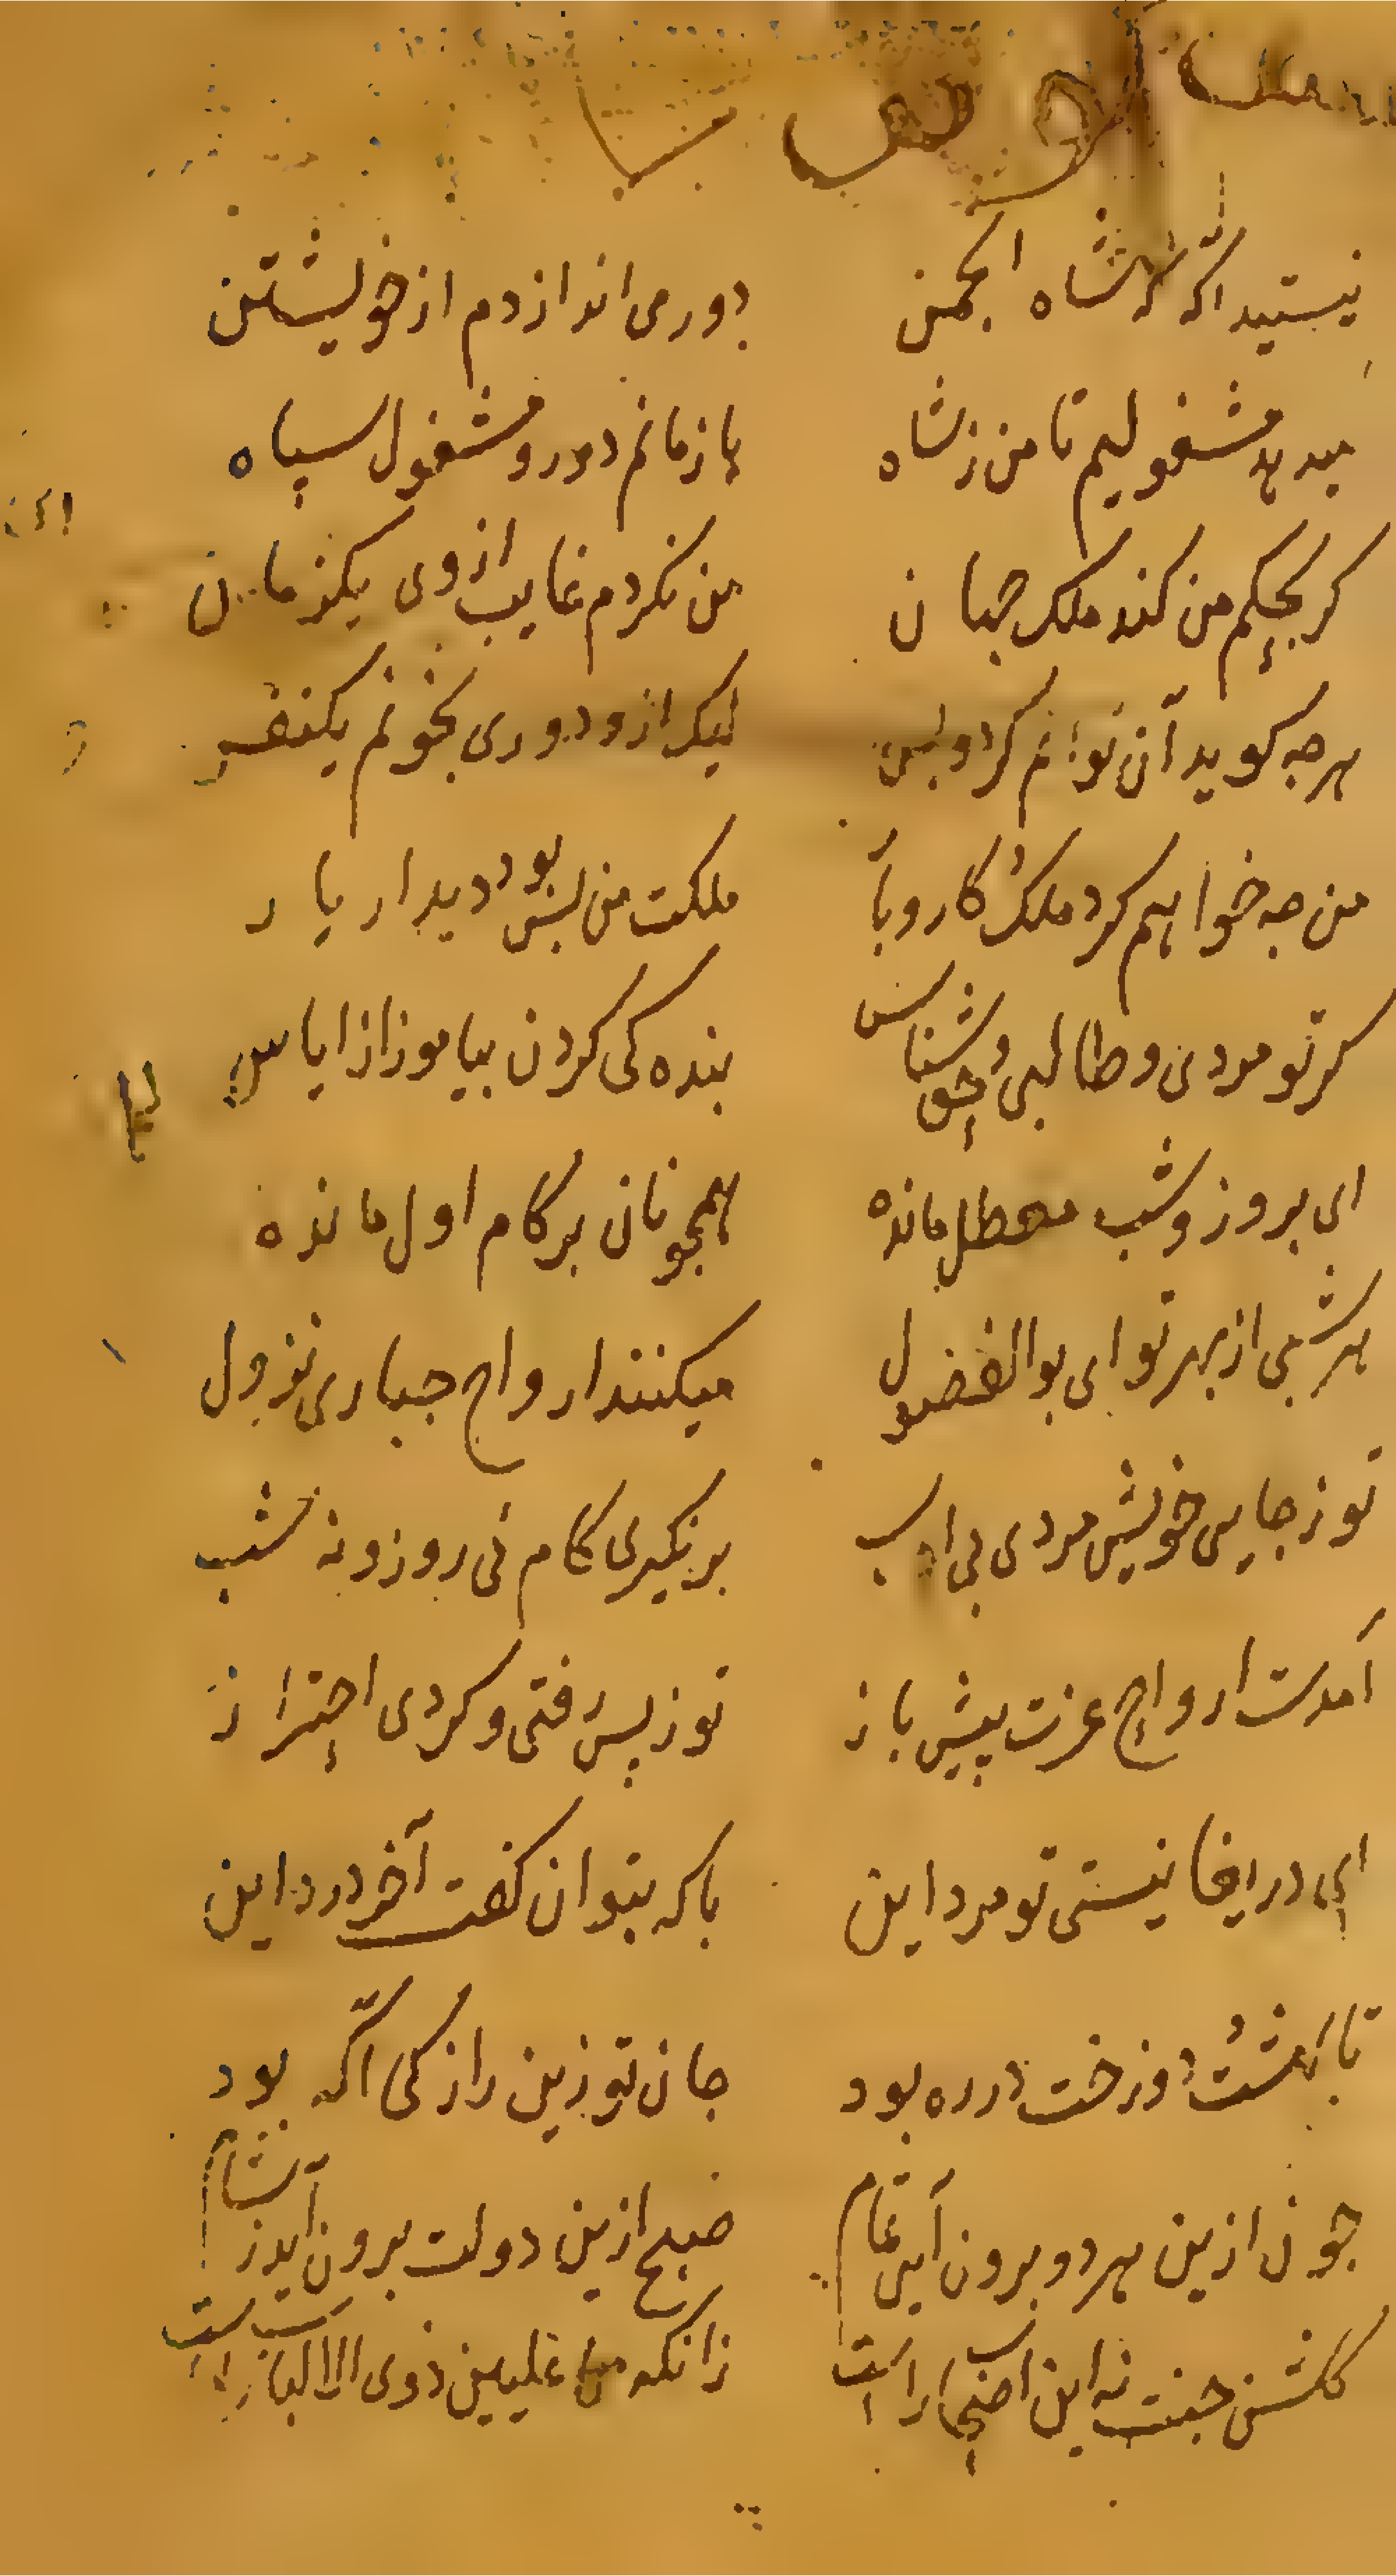 نیستید آگه که شاه انجمن دور می اندازدم از خویشتن
میدهد مشغولیم تا من ز شاه باز مانم دور و مشغول سپاه
کر بحکم من کند ملک جهان من نکردم غایب از وی یکزمان
هرچه کوید آن توانم کرد و بس لیک ازو دوری نجویم یکنفس
من چه خواهم کرد ملک و کار و بار ملکت من بس بود دیدار یار
کر تو مردی و طالبی و حق شناس بنده کی کردن بیاموز از ایاس
ای بروز و شب معطل مانده همچونان بر کام اول مانده
هر شبی از بهر تو ای بوالفضول میکنند ارواح جباری نزول
تو ز جای خویش مردی بی ادب بر نکیری کام نی روز و نه شب
آمدست ارواح عزت پیش باز تو ز پس رفتی و کردی احتراز
ای دریغا نیستی تو مرد این با که بتوان کفت آخر درد این
تا بهشت و دوزخت در ره بود جان تو زین راز کی آگه بود
چون ازین هر دو برون آیی تمام صبح ازین دولت برون آید ز شام
کلشن جنت نه این اصحاب راست زانکه علیین ذوی الالباب راست